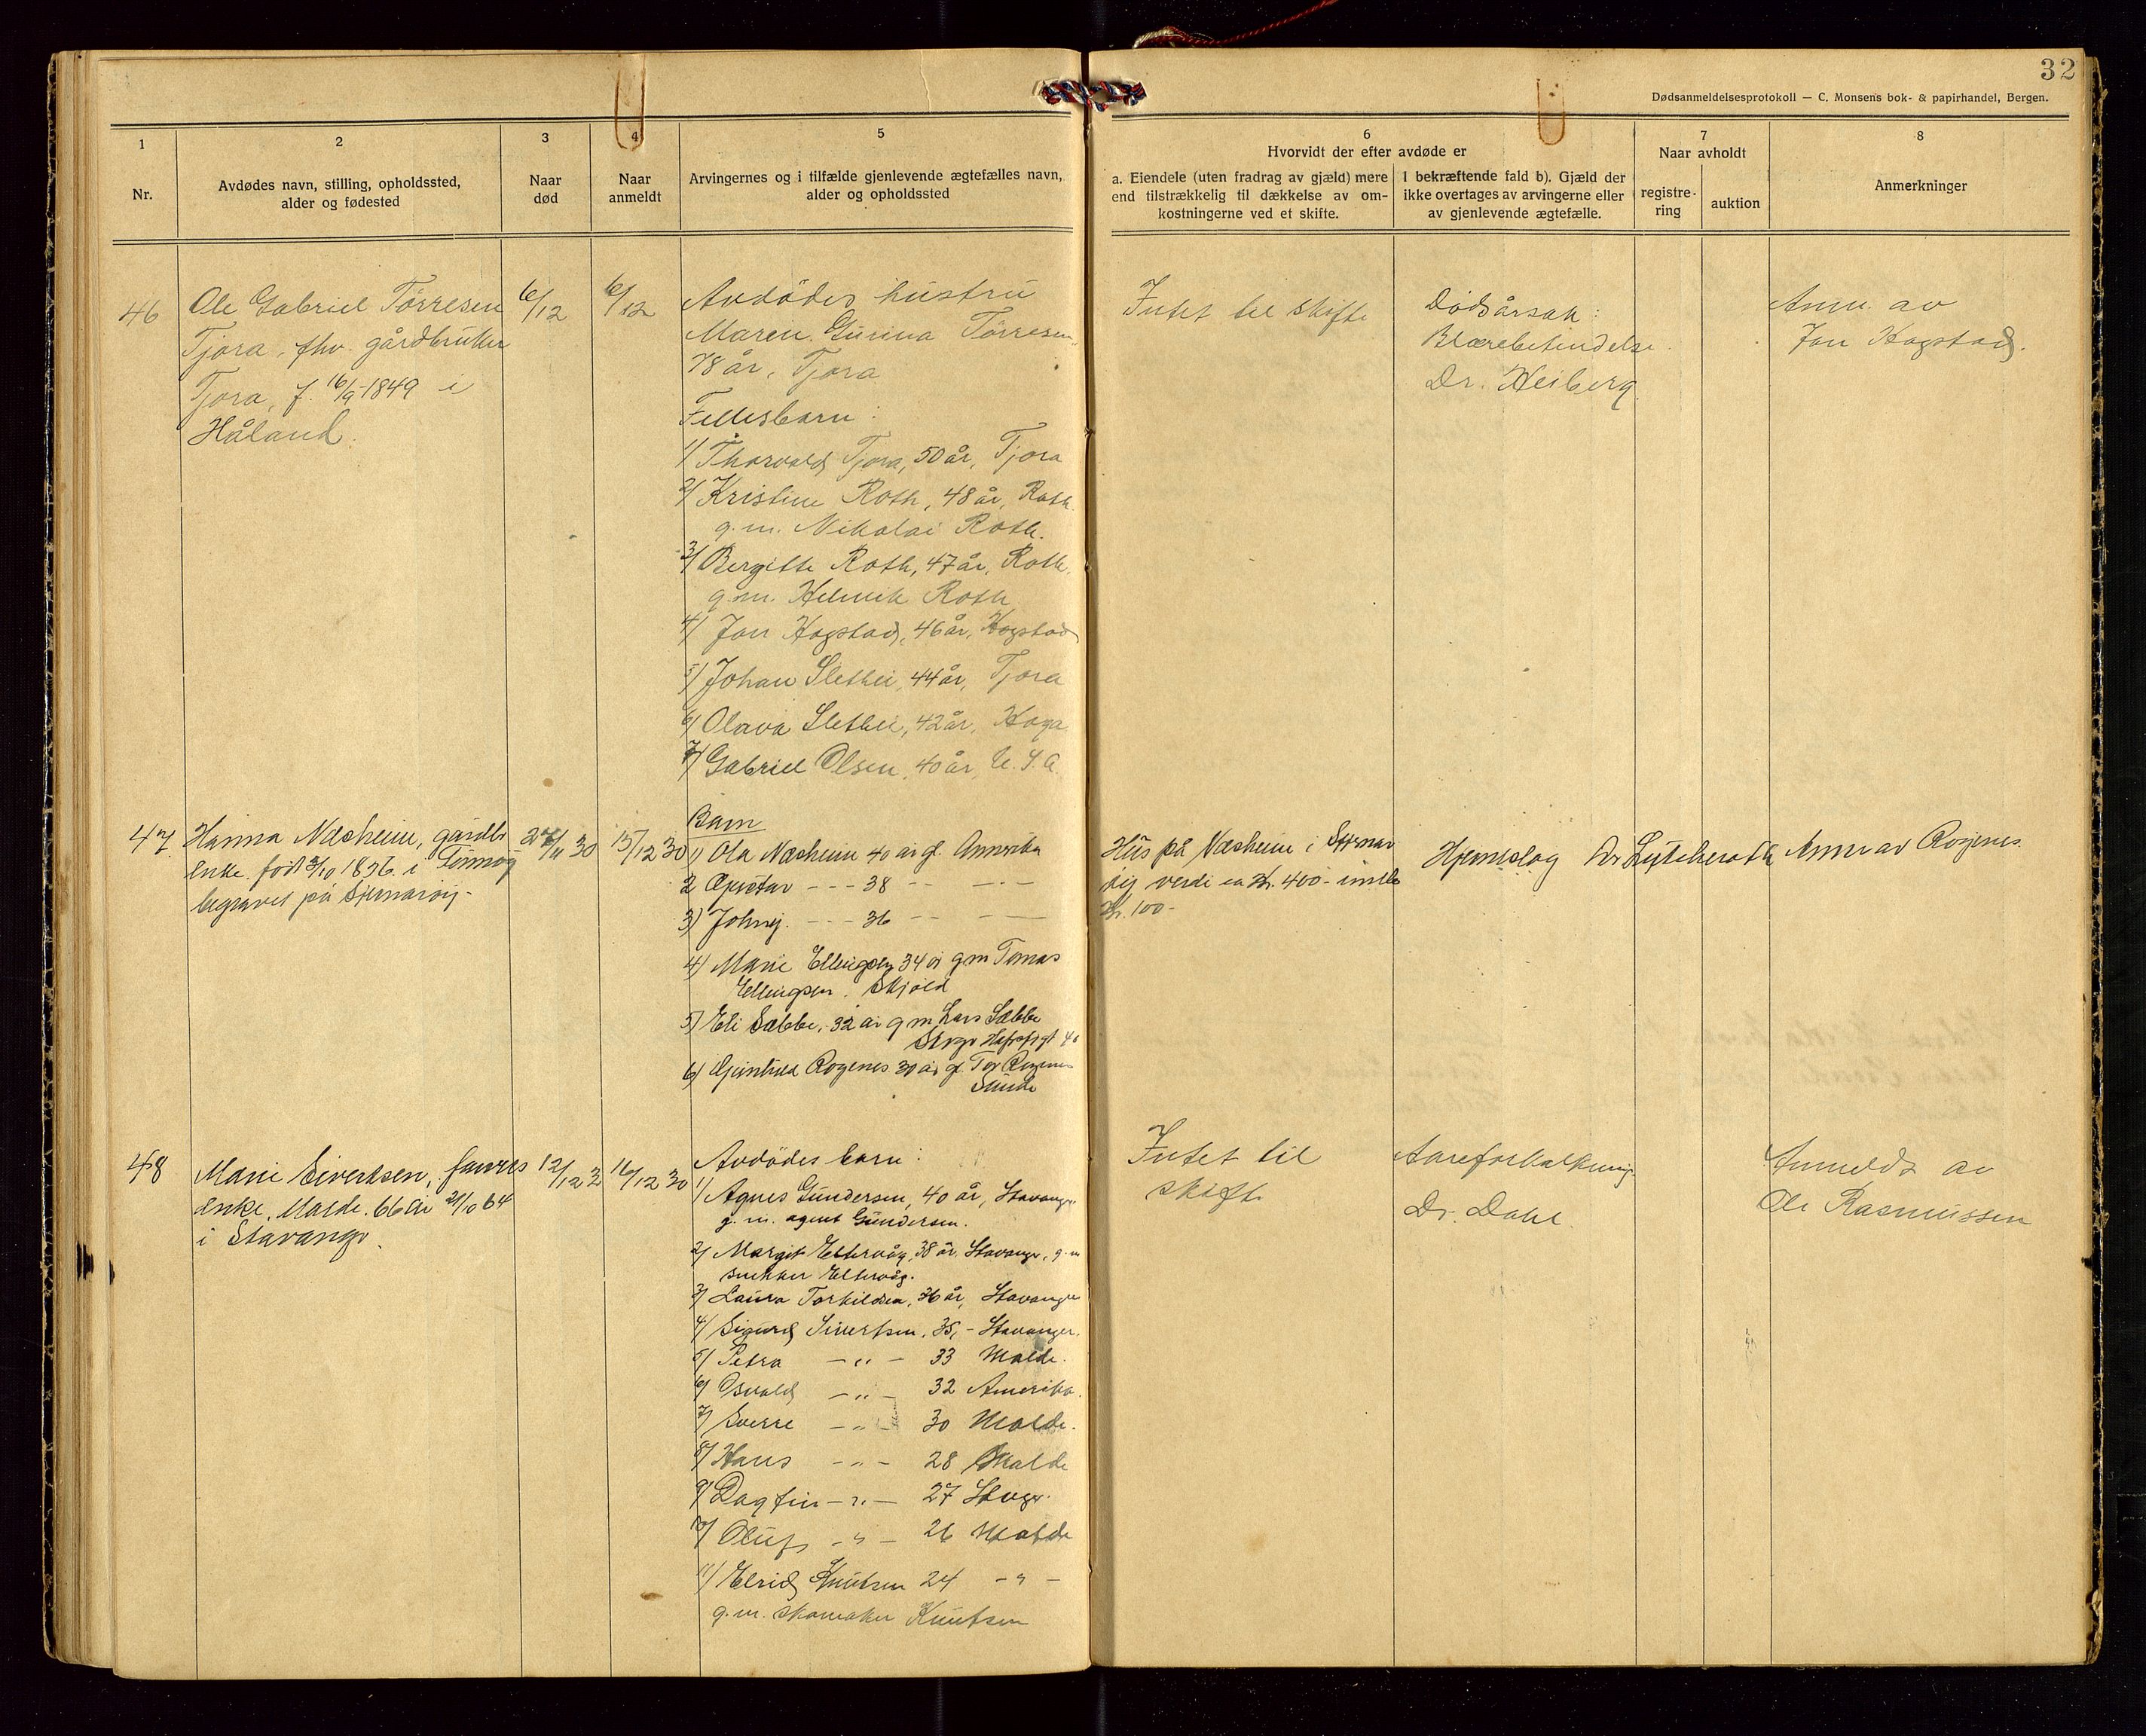 32
Dødsanmeldelsesprotokoll — C. Monsens bok- & papirhandel, Bergen.
1
Nr.
2
Avdødes navn, stilling, opholdssted,
alder og fødested
3
Naar
død
4
Naar
anmeldt
5
Arvingernes og i tilfælde gjenlevende ægtefælles navn,
alder og opholdssted
6
Hvorvidt der efter avdøde er
a. Eiendele (uten fradrag av gjæld) mere
end tilstrækkelig til dækkelse av om-
kostningerne ved et skifte.
I bekræftende fald b). Gjæld der
ikke overtages av arvingerne eller
av gjenlevende ægtefælle.
7
Naar avholdt
registre-
ring
auktion
8
Anmerkninger
46
Ole Gabriel Törresen
Tjora, fhv. gårdbruker
Tjora, f. 16/9-1849 i
Håland.
6/12
6/12
Avdödes hustru
Maren Gurina Törresen,
78 år, Tjora
Fellesbarn:
1/ Thorvald Tjora, 50 år, Tjora
2/ Kristine Roth, 48 år, Roth
g.m. Nikolai Roth.
3/ Bergitte Roth, 47 år, Roth,
g.m. Helmik Roth
4/ Jan Hogstad, 46 år, Hogstad
5/ Johan Slethei, 44 år, Tjora
6/ Olava Slethei, 42 år, Haga
7/ Gabriel Olsen, 40 år, U.S.A.
Intet til skifte
Dödsårsak:
Blærebetendelse.
Dr. Heiberg
Anm. av
Jan Hogstad.
47
Hanna Næsheim, gårdbr
enke. født 2/10 1856. i
begravet på Stjernarøy-
27/11 30
15/12 30
Barn
1) Ola Næsheim 40 år g. Amerika
2 --- 38 -- ---
3) Johnny. --- 36 -- ---
4) Marie Ellingsen 34 år g m Tomas
Ellingsen. Skjold
5) Eli Sæbbe, 32 år g m Lars Sæbbe
6) Gunhild Rogenes 30 år g. Tor Rogenes
Sunde
Hus på Næsheim i Stjernar
øy verdi ca Kr. 400- innbo
Kr. 100-
Hjerneslag Dr Lütcherath
Anm av Rogenes
48
Marie Sivertsen,
enke. Malde. 66 år 21/10 64
i Stavanger.
12/12 3
16/12 30
Avdödes barn:
1/ Agnes Gundersen, 40 år, Stavanger
g.m. agent Gundersen.
2/ Margit Eltervåg, 38 år. Stavanger, g.m
snekker Eltervåg.
3/ Laura Torkildsen, 36 år, Stavanger
4/ Sigurd Sivertsen, 35, - Stavanger.
5/ Petra — „ — 33 Malde.
6/ Osvald — „ — 32 Amerika.
7/ Sverre — „ — 30 Malde.
8/ Hans — „ — 28 Malde
9/ Dagfin — „ — 27 Stvgr.
10/ Oluf — „ — 26 Malde
11/ Elrid Knutsen 24 — „ —
g.m. skomaker Knutsen
Intet til
skifte
Aareforkalkning.
Dr. Dahl.
Anmeldt av
Ole Rasmussen